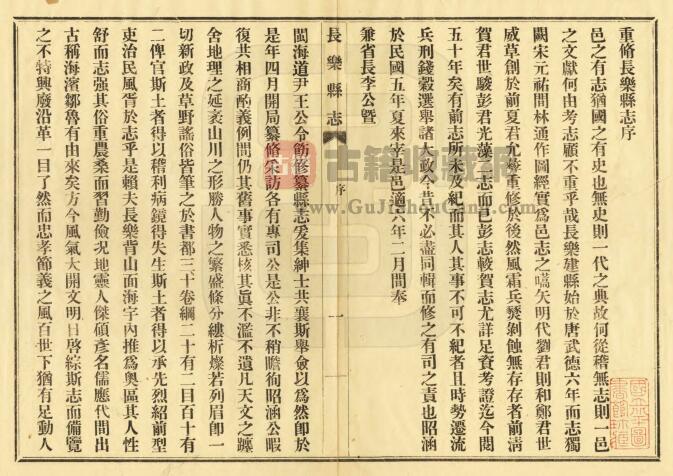 重修長樂縣志序
邑之有志猶國之有史也無史則一代之典故何從稽無志則一邑
之文獻何由考志顧不重乎哉長樂建縣始於唐武德六年而志獨
闕宋元祐間林通作圖經實爲邑志之嚆矢明代劉君則和鄭君世
威草創於前夏君允彝重修於後然風霜兵燹剝蝕無存存者前淸
賀君世駿彭君光藻二志而已彭志較賀志尤詳足資考證迄今閱
五十年矣有前志所未及紀而其人其事不可不紀者且時勢遷流
兵刑錢穀選舉諸大政今昔不必盡同輯而修之有司之責也昭涵
於民國五年夏來宰是邑適六年二月間奉
兼省長李公暨
長樂縣志
序
一
閩海道尹王公令飭修纂縣志爰集紳士共襄斯舉僉以爲然卽於
是年四月開局纂修采訪各有專司公是公非不稍瞻徇昭涵公暇
復共相商酌義例間仍其舊事實悉核其眞不濫不遺凡天文之躔
舍地理之延袤山川之形勝人物之繁盛條分縷析燦若列眉卽一
切新政及草野謠俗皆筆之於書都三十卷綱二十有二目百十有
二俾官斯土者得以稽利病鏡得失生斯土者得以承先烈紹前型
吏治民風胥於志乎是賴夫長樂背山面海宇內推爲奧區其人性
舒而志强其俗重農桑而習勤儉況地靈人傑碩彥名儒應代間出
古稱海濱鄒魯有由來矣方今風氣大開文明日啓綜斯志而備覽
之不特興廢沿革一目了然而忠孝節義之風百世下猶有足動人
古籍收藏網
www.GuJiShouCang.com